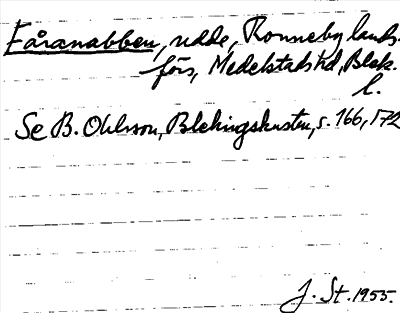 Fåranabben, udde, Ronneby lands-
förs, Medelstads hd, Blek.
l.
Se B. Ohlsson, Blekingskusten, s. 166, 172
J. St. 1955.